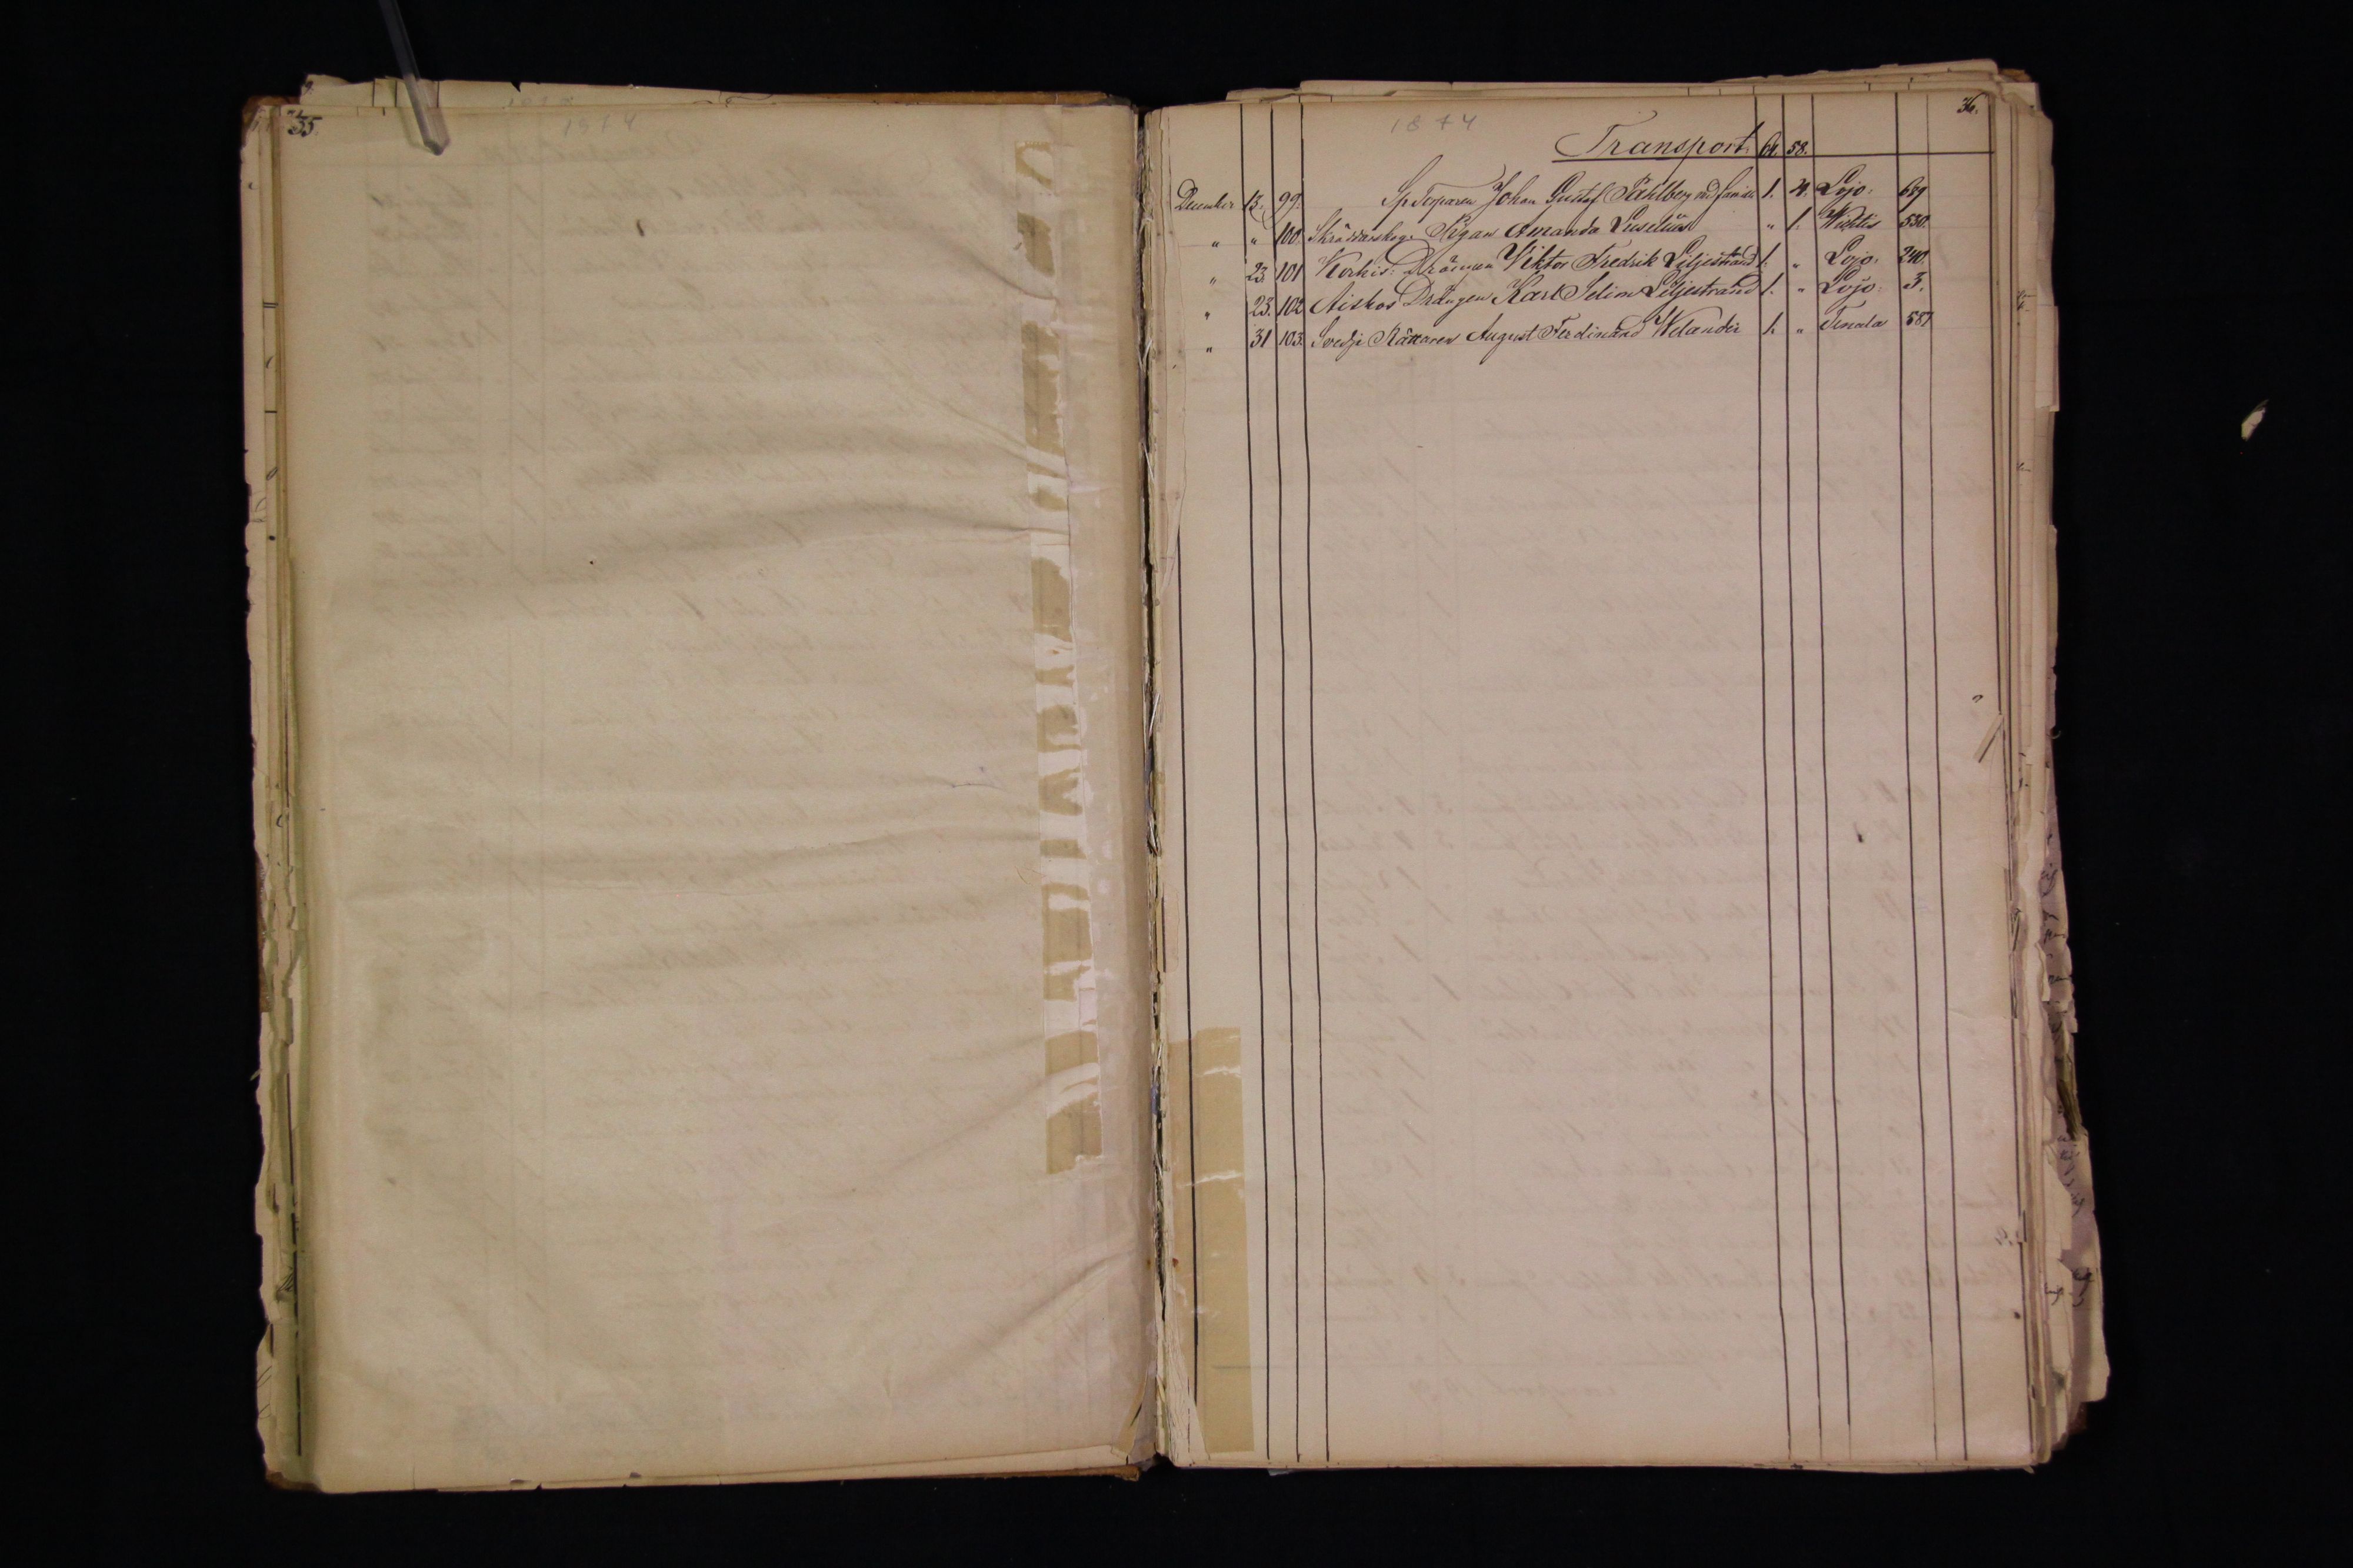 35.
1874
36.
1874
Transport 64. 58.
December 15. 99. Sp Torparen Johan Gustaf Påhlberg med familie 1. 4. Lojo. 689
" " 100. Skräddarskog. Pigan Amanda Luselius " 1. Wichtis 530.
" 23. 101 Korkis: Drängen Viktor Fredrik Liljestrand 1. " Lojo. 240.
" 23. 102 Aiskos Drängen Karl Selim Liljestrand 1. " Lojo. 3.
" 31 103. Svedja Rättaren August Ferdinand Welander 1. " Tenala 587